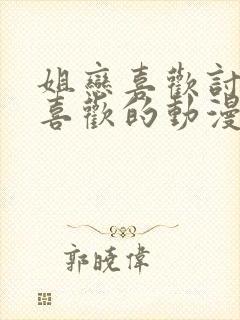 姐戀喜歡討
喜歡的動漫
郭曉偉